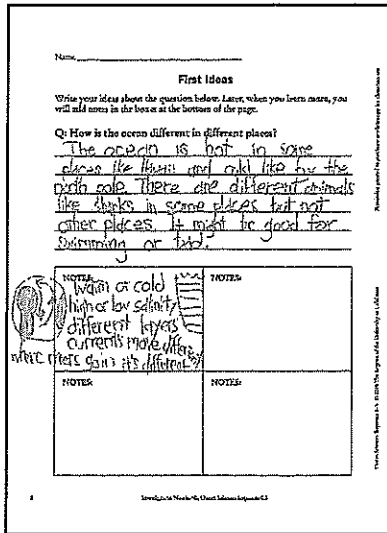 Name
First Ideas
Write your ideas about the question below. Later, when you learn more, you
will add notes in the boxes at the bottom of the page.
Q: How is the ocean different in different places?
The ocean is hot in some
places like Hawaii and cold like by the
north pole. There are different animals
like sharks in some places but not
other places. It might be good for
swimming or
NOTES:
Warm or cold
high or low salinity
different layers
currents move differently
where rivers join it's different
NOTES:
NOTES:
NOTES: